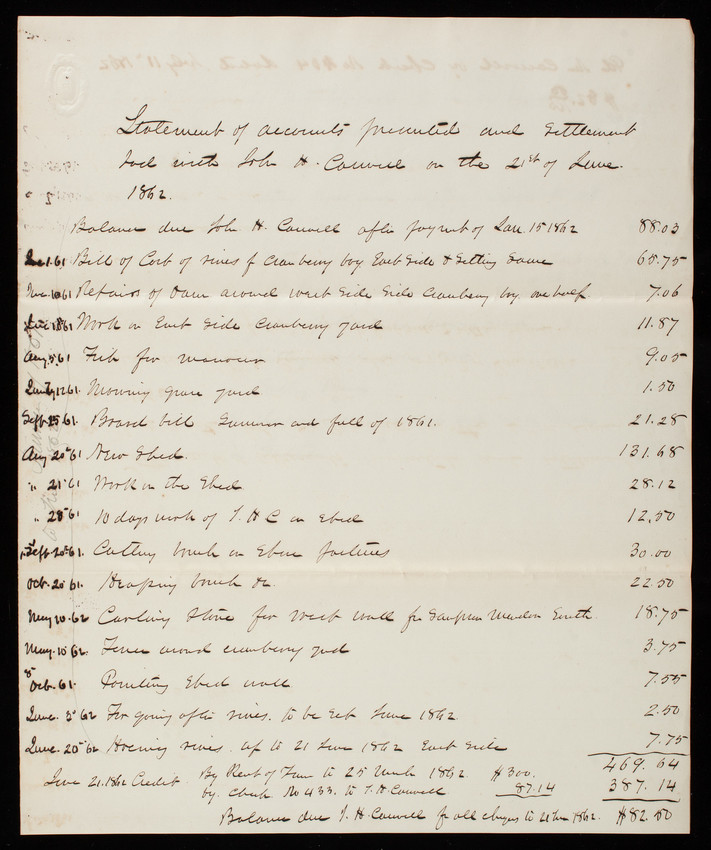 Statement of accounts presented and settlement
had with John H. Caswell on the 21st of June.
1862.
Balance due John H. Caswell after paymt of Jan 15 1862 88.03
61 Bill of Cost of vines f Cranberry bog East Side & Setting Same 65.75
Nov. 10 61 Repairs of Dam around west Side Side Cranberry bog. one half. 7.06
18 61 Work on East Side Cranberry yard 11.87
Aug. 5. 61 Fish for manure 9.05
12 61. Mowing grave yard 1.50
Sept. 25 61. Board bill Summer and fall of 1861. 21.28
Aug 20 61 New Shed. 131.68
" 21 61 Work on the Shed 28.12
" 28 61 10 days work of J. H C on Shed 12.50
Sept. 20 61. Cutting brush on pastures 30.00
Oct. 20 61. Heaping brush &c. 22.50
May 10. 62 Carting Stone for West wall fr Meadow South 18.75
May. 10 62. Fence around cranberry yard 3.75
8 Oct. 61. Pointing Shed wall 7.55
June. 5 62 For going after vines. to be Set June 1862 2.50
June. 20 62 Hoeing vines. up to 21 June 1862 East Side 7.75
469.64
June 21. 1862 Credit By Rent of Farm to 25 March 1862 $300.
by. check No 433. to J. H. Caswell 87.14 387.14
Balance due J. H. Caswell for all charges to 21 June 1862. $82.50